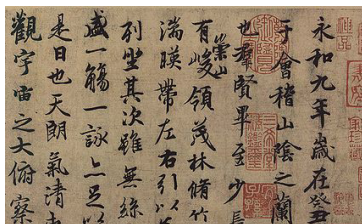 永和九年歲在癸
于會稽山陰之蘭
也羣賢畢至少長
有崇山峻領茂林脩竹
湍暎帶左右引以
列坐其次雖無絲
盛一觴一詠亦足以
是日也天朗氣清
觀宇宙之大俯察